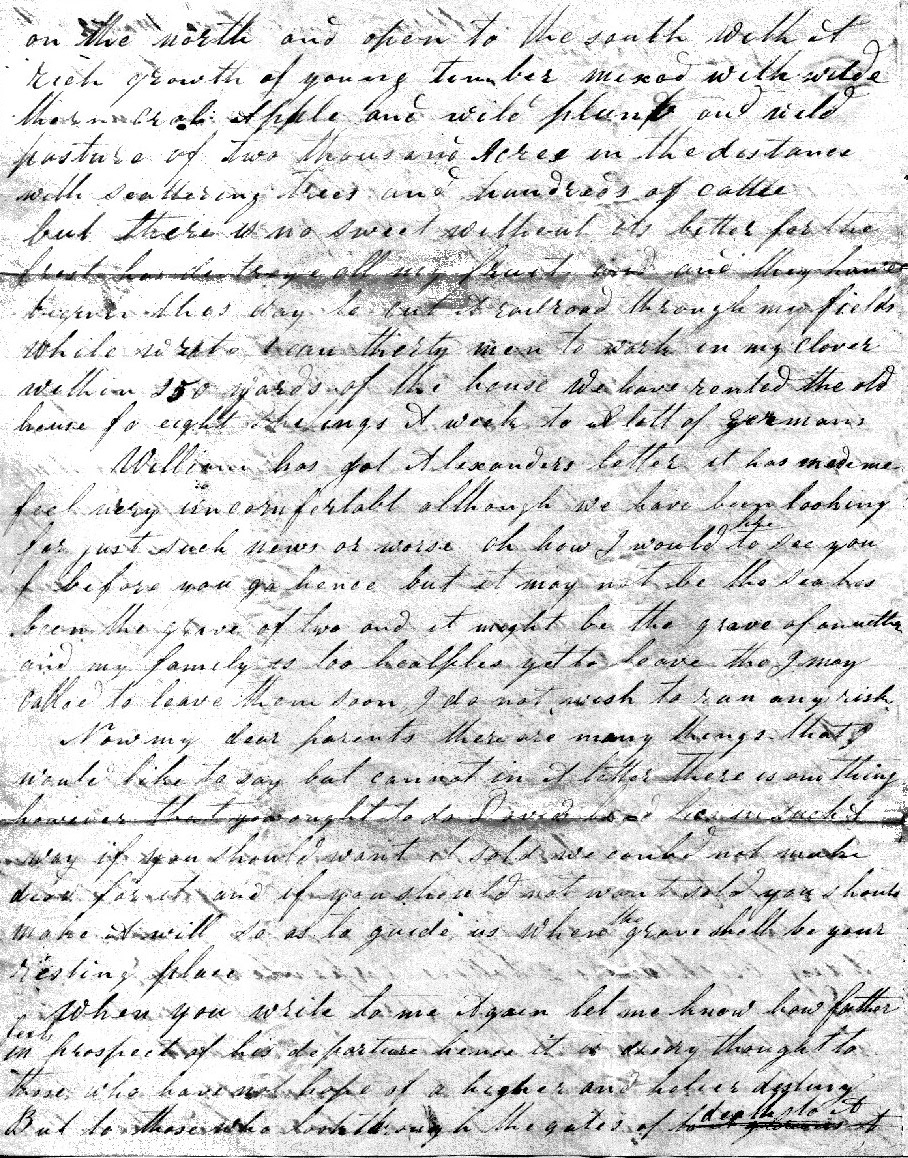 on the north and open to the south with at
rich growth of young timber mixed with wilde
thorn crab Apple and wild plumb and wild
pasture of two thousand Acres in the distance
with scattering trees and hundreds of cattle
but there is no sweet without its bitter for the
frost has destroye all my fruit and they have
begun this day to cut A railroad through my fields
while I can thirty men to work in my clover
within 250 yards of the house We have rented the old
house fo eight shelings A week to A lott of germans
William has got Alexanders letter it has made me
feel very uncomfertabl although we have been looking
for just such news or worse Oh how I would like to see you
before you go hence but it may not be the sea has
been the grave of two and it might be the grave of another
and my family is too healples yet to leave tho I may
called to leave them soon I do not wish to run any risk
Now my dear parents there are many things that I
would like to say but cannot in A letter there is one thing
however that you ought to do in such A
way if you should want it sold we could not make
deed for it and if you should not want sold you should
make at will so as to guide us when the grave shall be your
resting place
When you write to me Again let me know how father
feels
in prospect of his departure hence it is thought to
those who have not hope of a higher and destiny
But to those who look through the gates of death to it